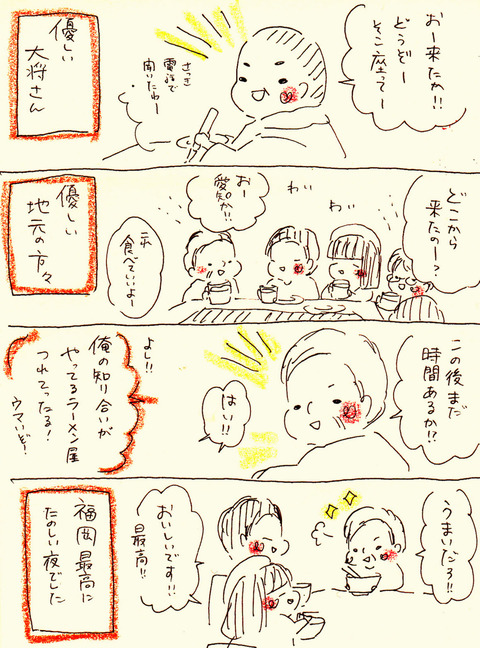 おー来たか!!
どうぞー
そこ座ってー
さっき
電話で
聞いたわー
優しい
大将さん
どこから
来たのー?
わい
わい
おー
愛知か!!
食べていいよー
優しい
地元の方々
この後まだ
時間あるか!?
はい!!
よし!!
俺の知り合いが
やってるラーメン屋
つれてったる!
ウマいぞ!
うまいだろ!!
おいしいです!!
最高!!
福岡最高に
たのしい夜でした